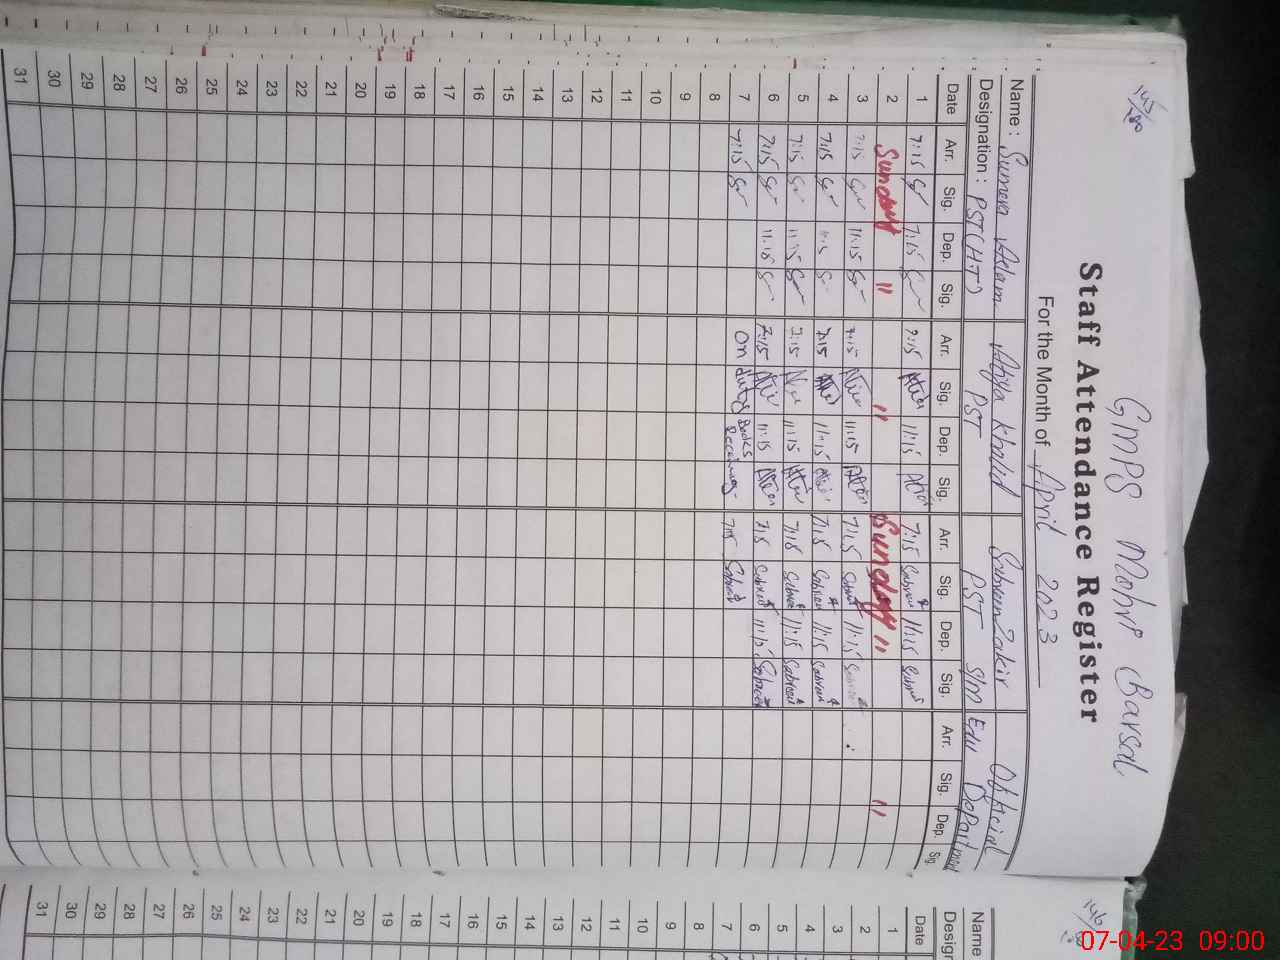 145/180
GMPS Mohri Barsal
Staff Attendance Register
For the Month of April 2023
Name : Sumera Aslam Atiya Khalid Sabreen Zakir Official
Designation : PST(HT) PST PST S/M Edu Department
Date Arr. Sig. Dep. Sig. Arr. Sig. Dep. Sig. Arr. Sig. Dep. Sig. Arr. Sig. Dep. Sig.
1 7:15 7:15 7:15 11:15 7:15 Sabreen 11:15 Sabreen
2 Sunday " " Sunday " "
3 7:15 11:15 7:15 11:15 7:15 Sabreen 11:15 Sabreen
4 7:15 11:15 7:15 11:15 7:15 Sabreen 11:15 Sabreen
5 7:15 11:15 7:15 11:15 7:15 Sabreen 11:15 Sabreen
6 7:15 11:15 7:15 11:15 7:15 Sabreen 11:15 Sabreen
7 7:15 On duty Books Receiving 7:15 Sabreen
8
9
10
11
12
13
14
15
16
17
18
19
20
21
22
23
24
25
26
27
28
29
30
31
146
Name
Desig
Date
1
2
3
4
5
6
7
8
9
10
11
12
13
14
15
16
17
18
19
20
21
22
23
24
25
26
27
28
29
30
31
07-04-23 09:00